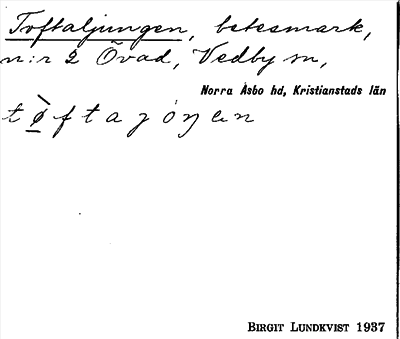 Toftaljungen, betesmark,
n:r 2 Övad, Vedby sn,
Norra Åsbo hd, Kristianstads län
BIRGIT LUNDKVIST 1937